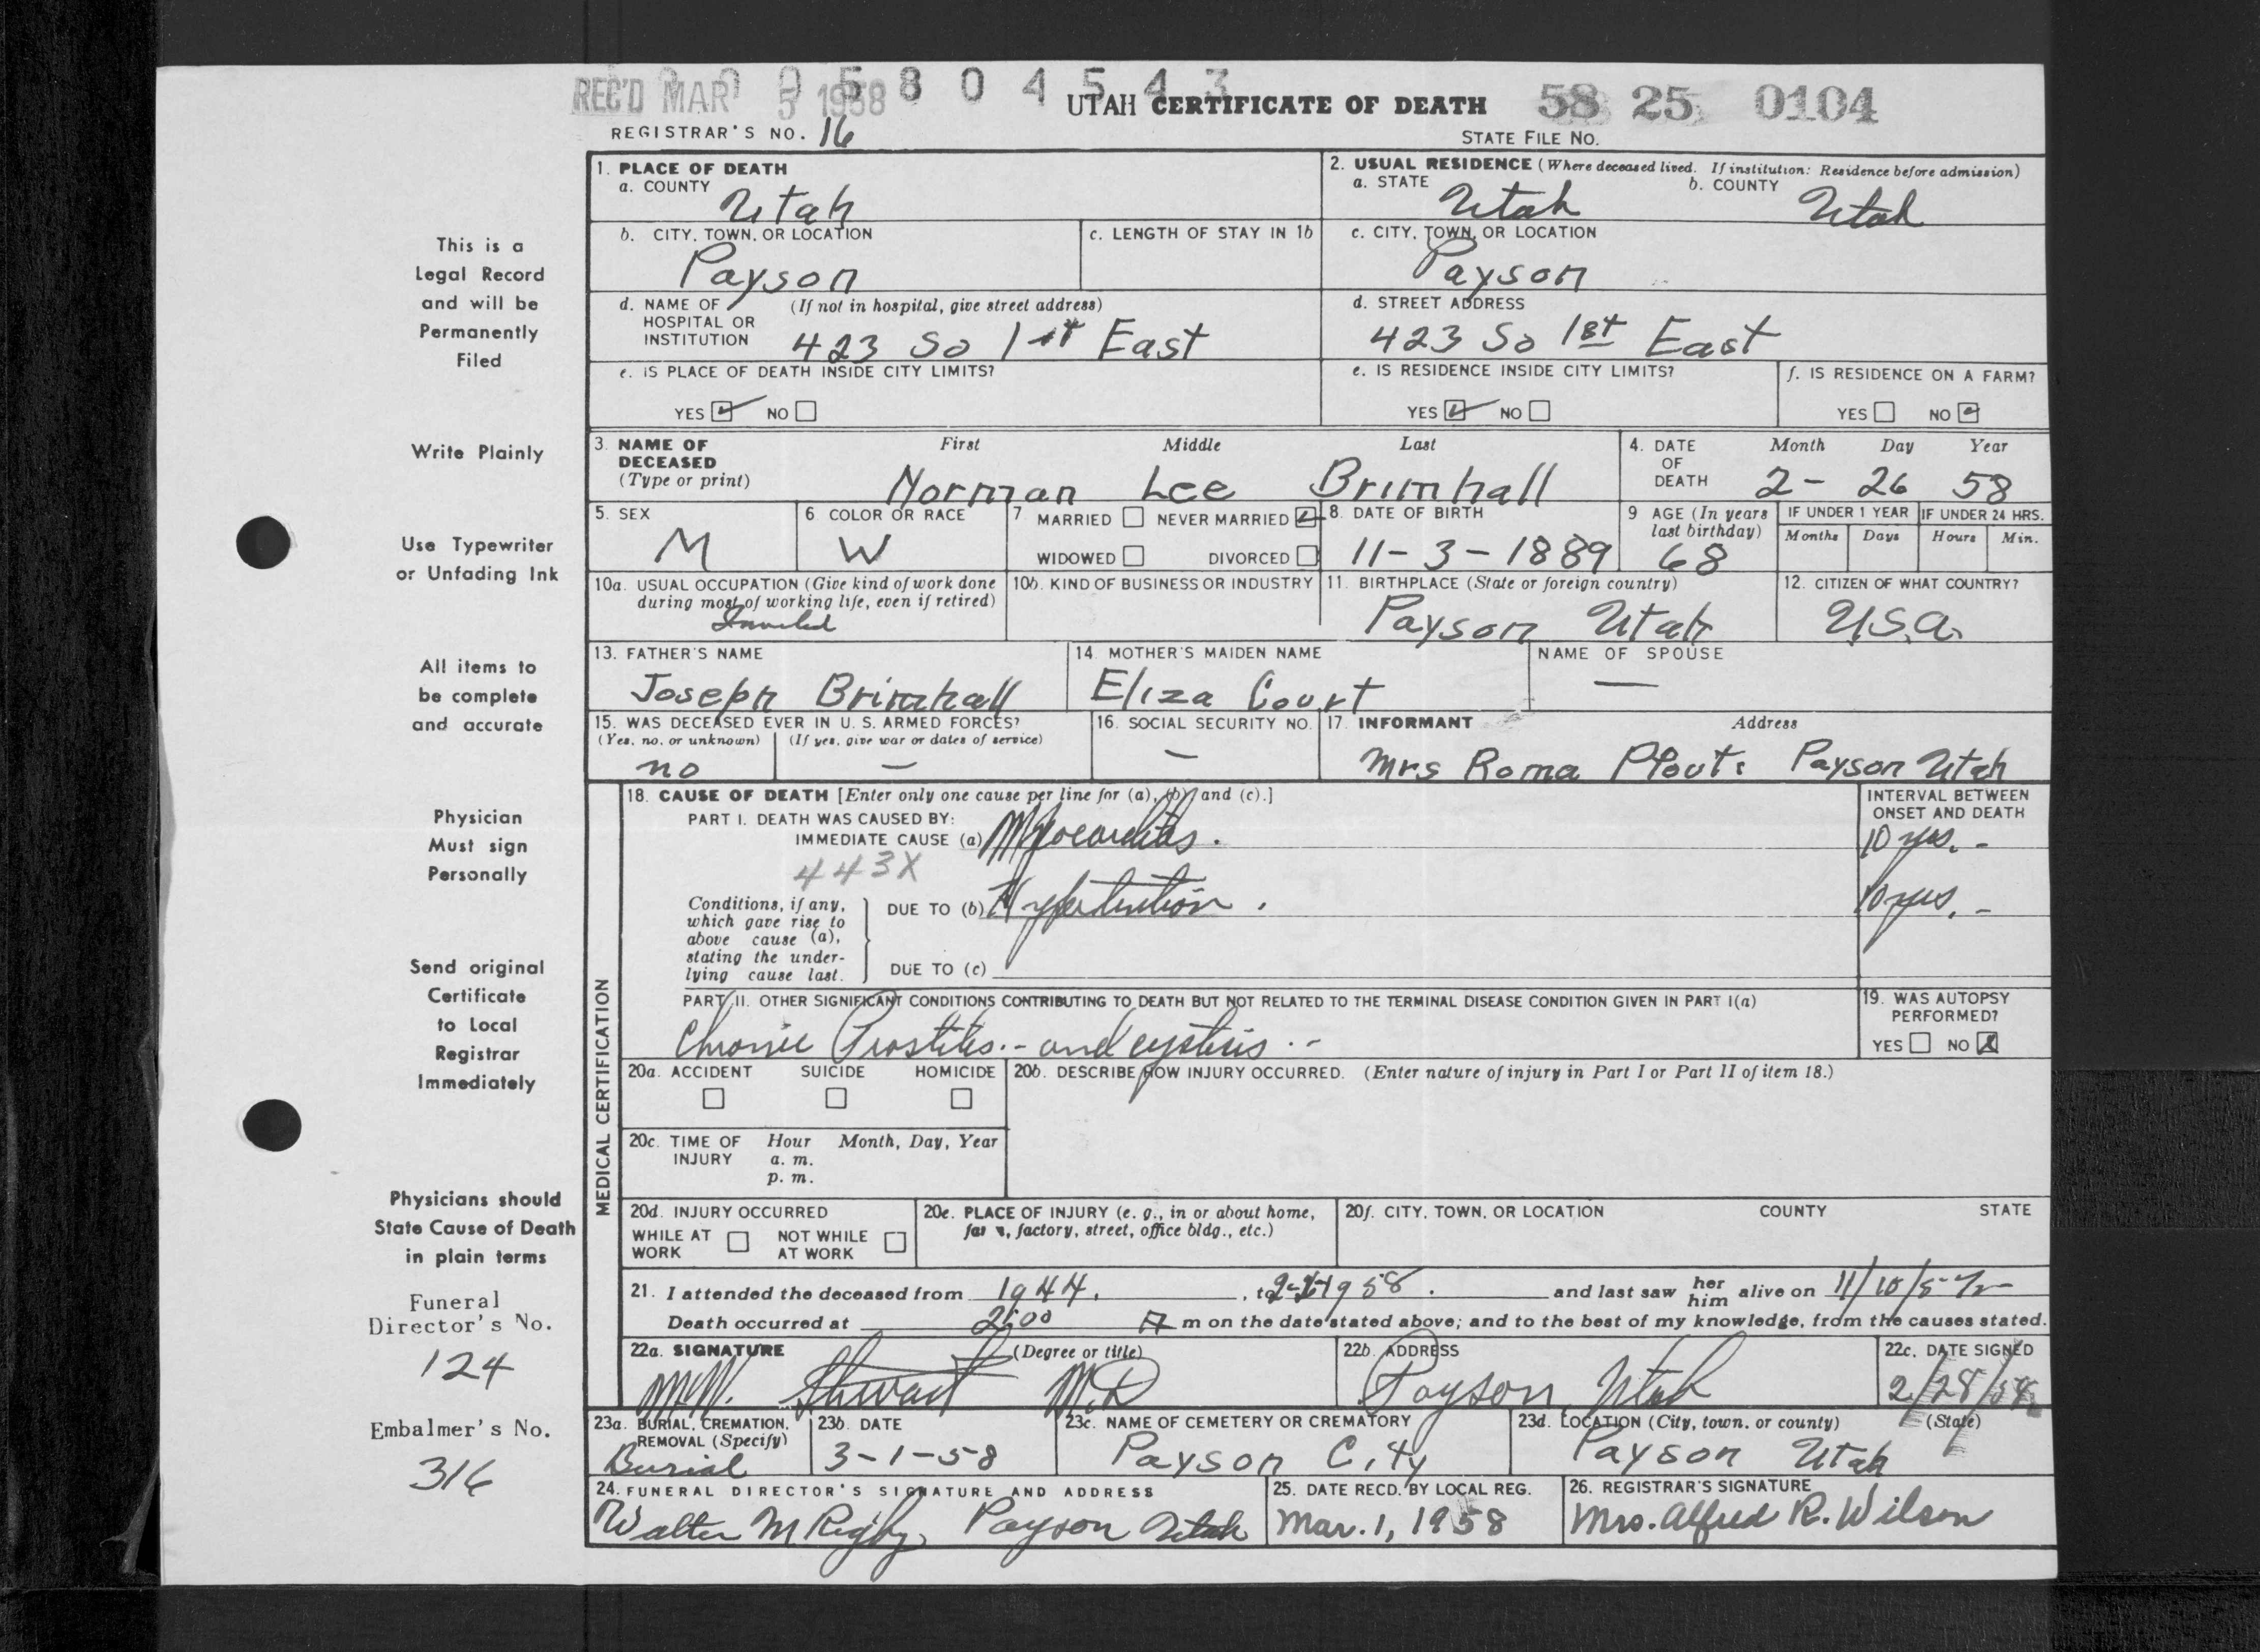 REC'D MAR 5 1958
0 0 5 8 0 4 5 4 3
UTAH CERTIFICATE OF DEATH
58 25 0104
REGISTRAR'S NO. 16
STATE FILE NO.
This is a
Legal Record
and will be
Permanently
Filed
Write Plainly
Use Typewriter
or Unfading Ink
All items to
be complete
and accurate
Physician
Must sign
Personally
Send original
Certificate
to Local
Registrar
Immediately
Physicians should
State Cause of Death
in plain terms
Funeral
Director's No.
124
Embalmer's No.
316
1. PLACE OF DEATH
a. COUNTY
Utah
2. USUAL RESIDENCE (Where deceased lived. If institution: Residence before admission)
a. STATE Utah b. COUNTY Utah
b. CITY, TOWN, OR LOCATION
Payson
c. LENGTH OF STAY IN 1b
c. CITY, TOWN, OR LOCATION
Payson
d. NAME OF (If not in hospital, give street address)
HOSPITAL OR
INSTITUTION 423 So 1st East
d. STREET ADDRESS
423 So 1st East
e. IS PLACE OF DEATH INSIDE CITY LIMITS?
YES NO
e. IS RESIDENCE INSIDE CITY LIMITS?
YES NO
f. IS RESIDENCE ON A FARM?
YES NO
3. NAME OF DECEASED (Type or print)
First Middle Last
Norman Lee Brimhall
4. DATE OF DEATH
Month Day Year
2 - 26 58
5. SEX
M
6 COLOR OR RACE
W
7 MARRIED NEVER MARRIED
WIDOWED DIVORCED
8. DATE OF BIRTH
11-3-1889
9 AGE (In years
last birthday)
68
IF UNDER 1 YEAR
Months Days
IF UNDER 24 HRS.
Hours Min.
10a. USUAL OCCUPATION (Give kind of work done
during most of working life, even if retired)
10b. KIND OF BUSINESS OR INDUSTRY
11. BIRTHPLACE (State or foreign country)
Payson Utah
12. CITIZEN OF WHAT COUNTRY?
U.S.A.
13. FATHER'S NAME
Joseph Brimhall
14. MOTHER'S MAIDEN NAME
Eliza Court
NAME OF SPOUSE
—
15. WAS DECEASED EVER IN U. S. ARMED FORCES?
(Yes, no, or unknown) (If yes, give war or dates of service)
no —
16. SOCIAL SECURITY NO.
—
17. INFORMANT Address
Mrs Roma Payson Utah
MEDICAL CERTIFICATION
18. CAUSE OF DEATH [Enter only one cause per line for (a), (b) and (c).]
PART I. DEATH WAS CAUSED BY:
IMMEDIATE CAUSE (a) Myocarditis.
443X
Conditions, if any,
which gave rise to
above cause (a),
stating the under-
lying cause last.
DUE TO (b) Hypertention.
DUE TO (c)
INTERVAL BETWEEN
ONSET AND DEATH
10 yrs. -
10 yrs. -
PART II. OTHER SIGNIFICANT CONDITIONS CONTRIBUTING TO DEATH BUT NOT RELATED TO THE TERMINAL DISEASE CONDITION GIVEN IN PART I(a)
Chronic Prostites. - and cystitis. -
19. WAS AUTOPSY
PERFORMED?
YES NO
20a. ACCIDENT SUICIDE HOMICIDE
20b. DESCRIBE HOW INJURY OCCURRED. (Enter nature of injury in Part I or Part II of item 18.)
20c. TIME OF INJURY
Hour Month, Day, Year
a. m.
p. m.
20d. INJURY OCCURRED
WHILE AT WORK NOT WHILE AT WORK
20e. PLACE OF INJURY (e. g., in or about home,
farm, factory, street, office bldg., etc.)
20f. CITY, TOWN, OR LOCATION COUNTY STATE
21. I attended the deceased from 1944. , to 1958. and last saw her him alive on 11/10/57
Death occurred at 2:00 A m on the date stated above; and to the best of my knowledge, from the causes stated.
22a. SIGNATURE (Degree or title)
M.W. Stewart M.D
22b. ADDRESS
Payson, Utah
22c. DATE SIGNED
2/28/58
23a. BURIAL, CREMATION,
REMOVAL (Specify)
Burial
23b. DATE
3-1-58
23c. NAME OF CEMETERY OR CREMATORY
Payson City
23d. LOCATION (City, town, or county) (State)
Payson Utah
24. FUNERAL DIRECTOR'S SIGNATURE AND ADDRESS
Walter M Rigby Payson Utah
25. DATE RECD. BY LOCAL REG.
Mar. 1, 1958
26. REGISTRAR'S SIGNATURE
Mrs. Alfred R. Wilson